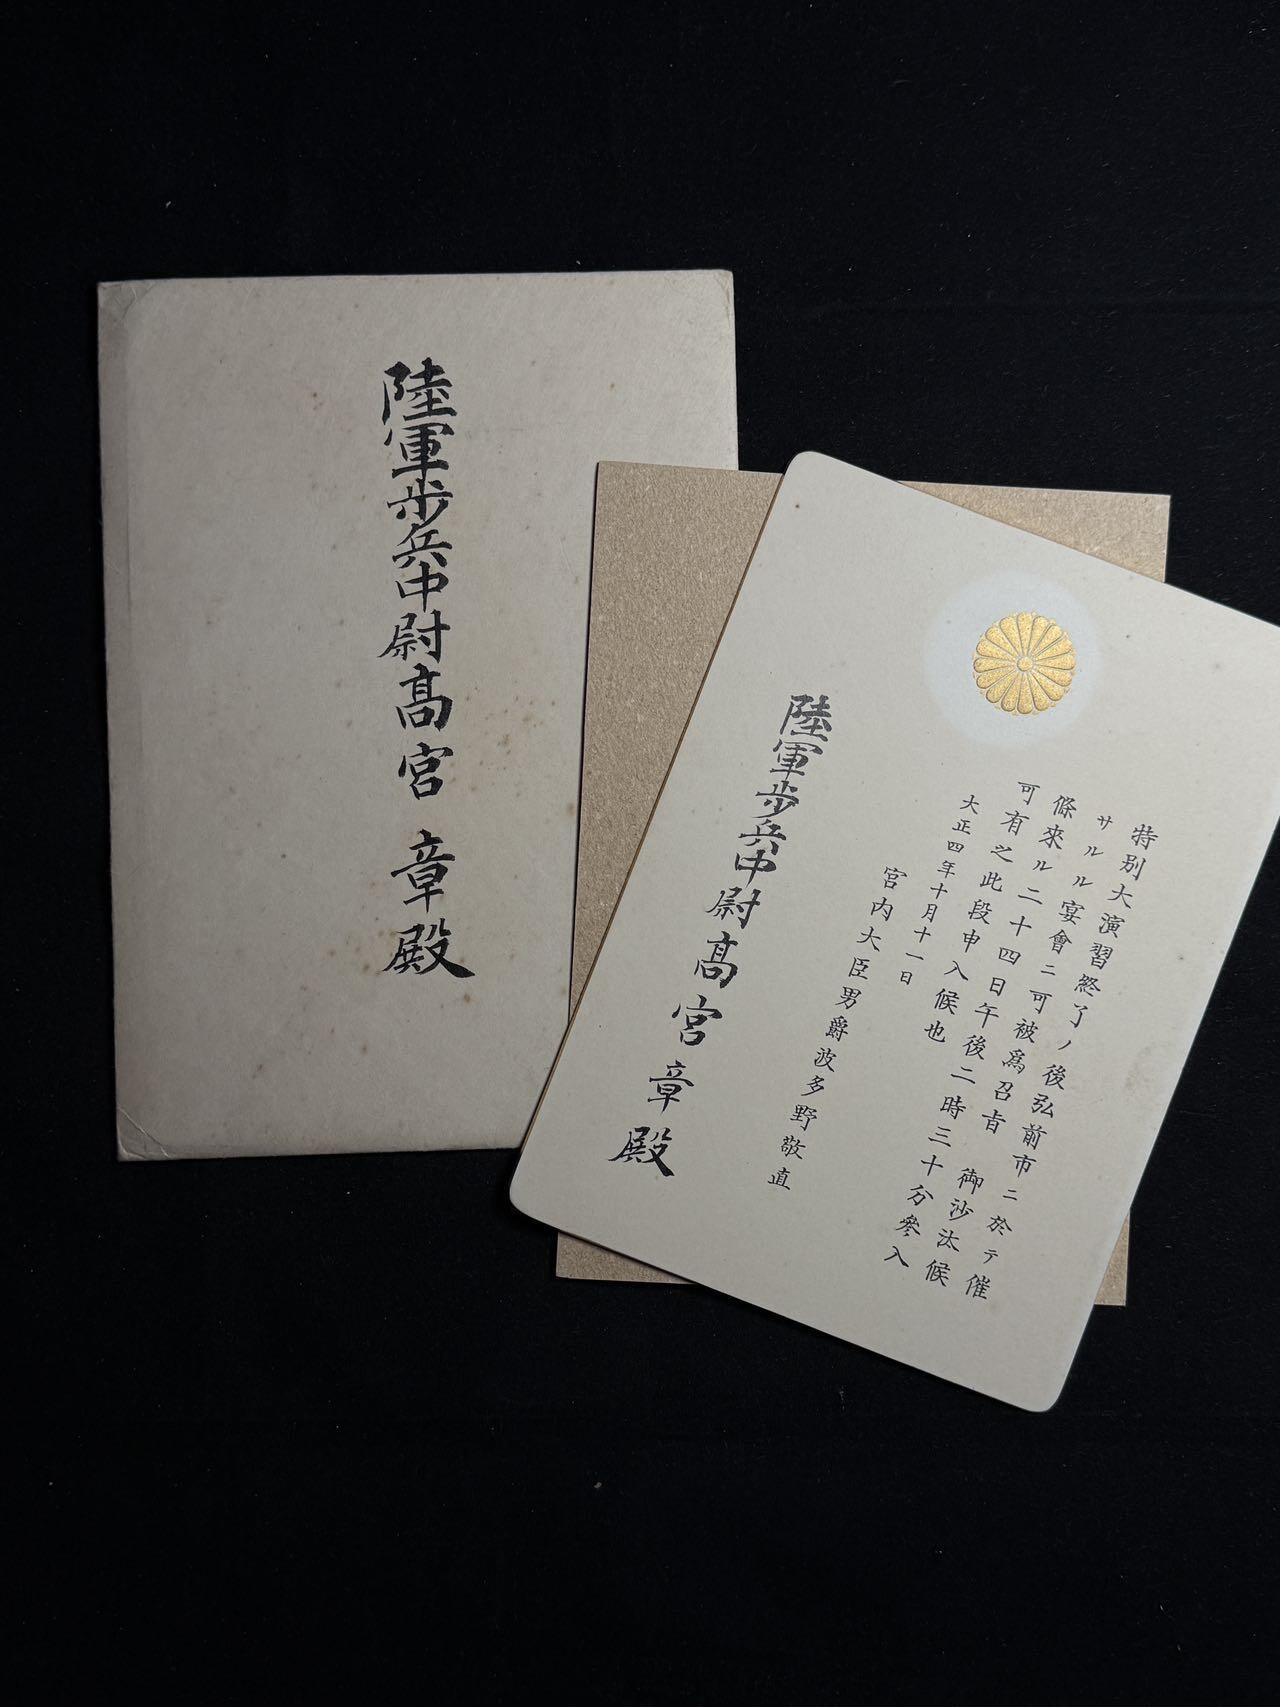 陸軍歩兵中尉髙宮章殿
特別大演習終了ノ後弘前市ニ於テ催
サルル宴會ニ可被爲召旨　御沙汰候
條來ル二十四日午後二時三十分參入
可有之此段申入候也
大正四年十月十一日
宮内大臣男爵波多野敬直
陸軍歩兵中尉髙宮章殿